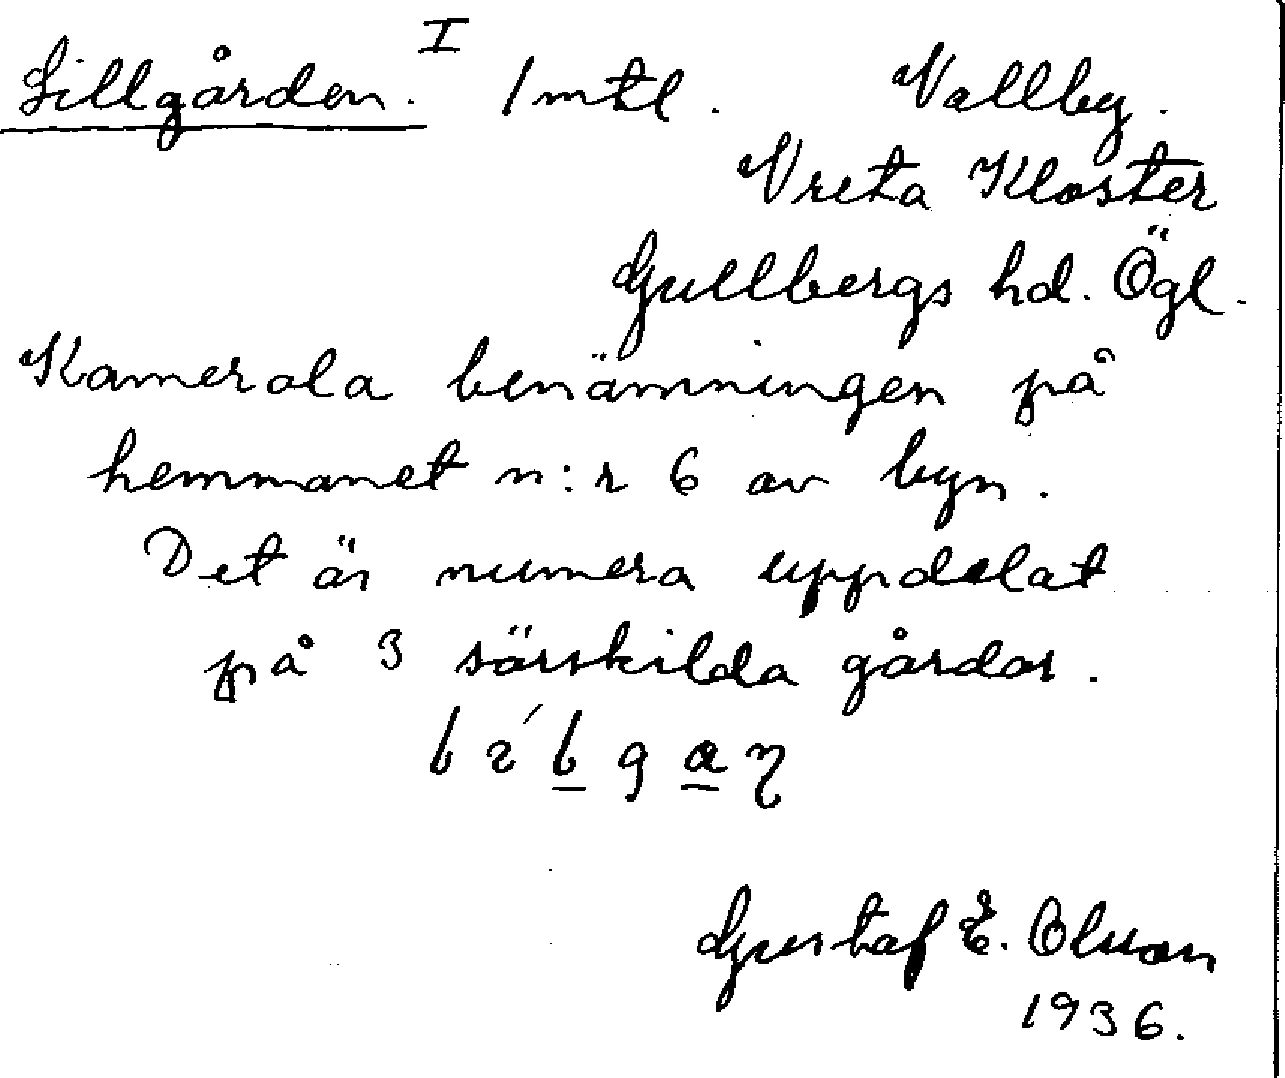 Lillgården. I 1 mtl. Vallby.
Vreta Kloster
Gullbergs hd. Ögl.
Kamerala benämningen på
hemmanet n:r 6 av byn.
Det är numera uppdelat
på 3 särskilda gårdar.
Gustaf E. Olsson
1936.